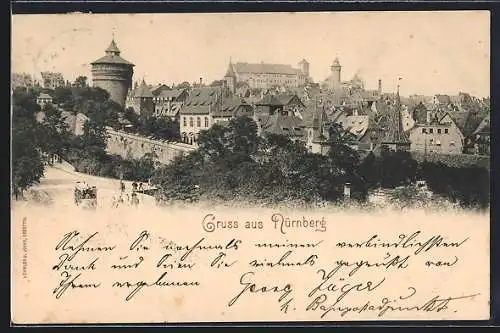 Gruss aus Nürnberg
Nehmen Sie nochmals meinen verbindlichsten
Dank und seien Sie vielmals gegrüßt von
Ihrem ergebenen Georg Jäger
k. Bahnhofadjunkt